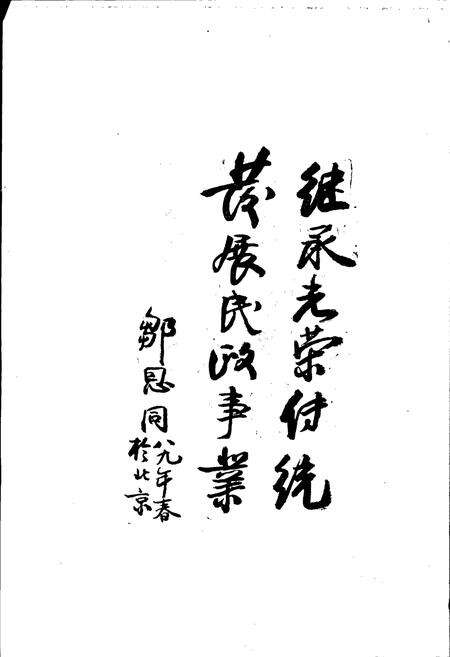 继承光荣传统
发展民政事业
邹恩同
八九年春
於北京